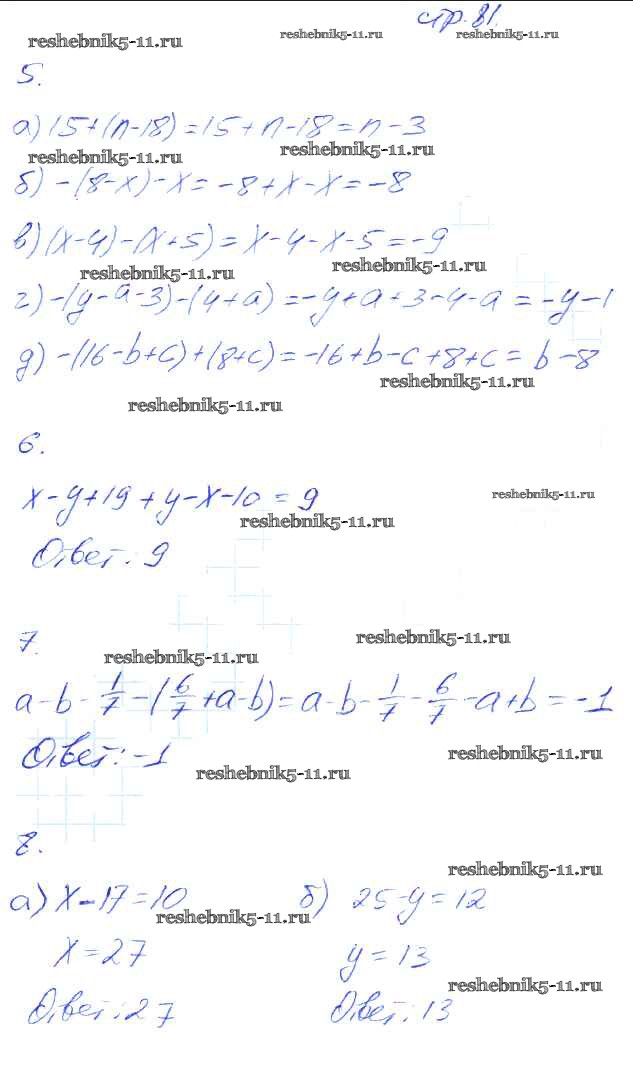 стр. 81.
reshebnik5-11.ru reshebnik5-11.ru reshebnik5-11.ru
5.
а) 15+(n-18)=15+n-18=n-3
reshebnik5-11.ru reshebnik5-11.ru
б) -(8-x)-x=-8+x-x=-8
в) (x-4)-(x+5)=x-4-x-5=-9
reshebnik5-11.ru reshebnik5-11.ru
г) -(y-a-3)-(4+a)=-y+a+3-4-a=-y-1
д) -(16-b+c)+(8+c)=-16+b-c+8+c=b-8
reshebnik5-11.ru
reshebnik5-11.ru
6.
x-y+19+y-x-10=9
reshebnik5-11.ru
reshebnik5-11.ru
Ответ: 9
7.
reshebnik5-11.ru
reshebnik5-11.ru
a-b-1/7-(6/7+a-b)=a-b-1/7-6/7-a+b=-1
Ответ: -1
reshebnik5-11.ru
reshebnik5-11.ru
8.
reshebnik5-11.ru
а) x-17=10 б) 25-y=12
reshebnik5-11.ru
x=27 y=13
reshebnik5-11.ru
Ответ: 27 Ответ: 13